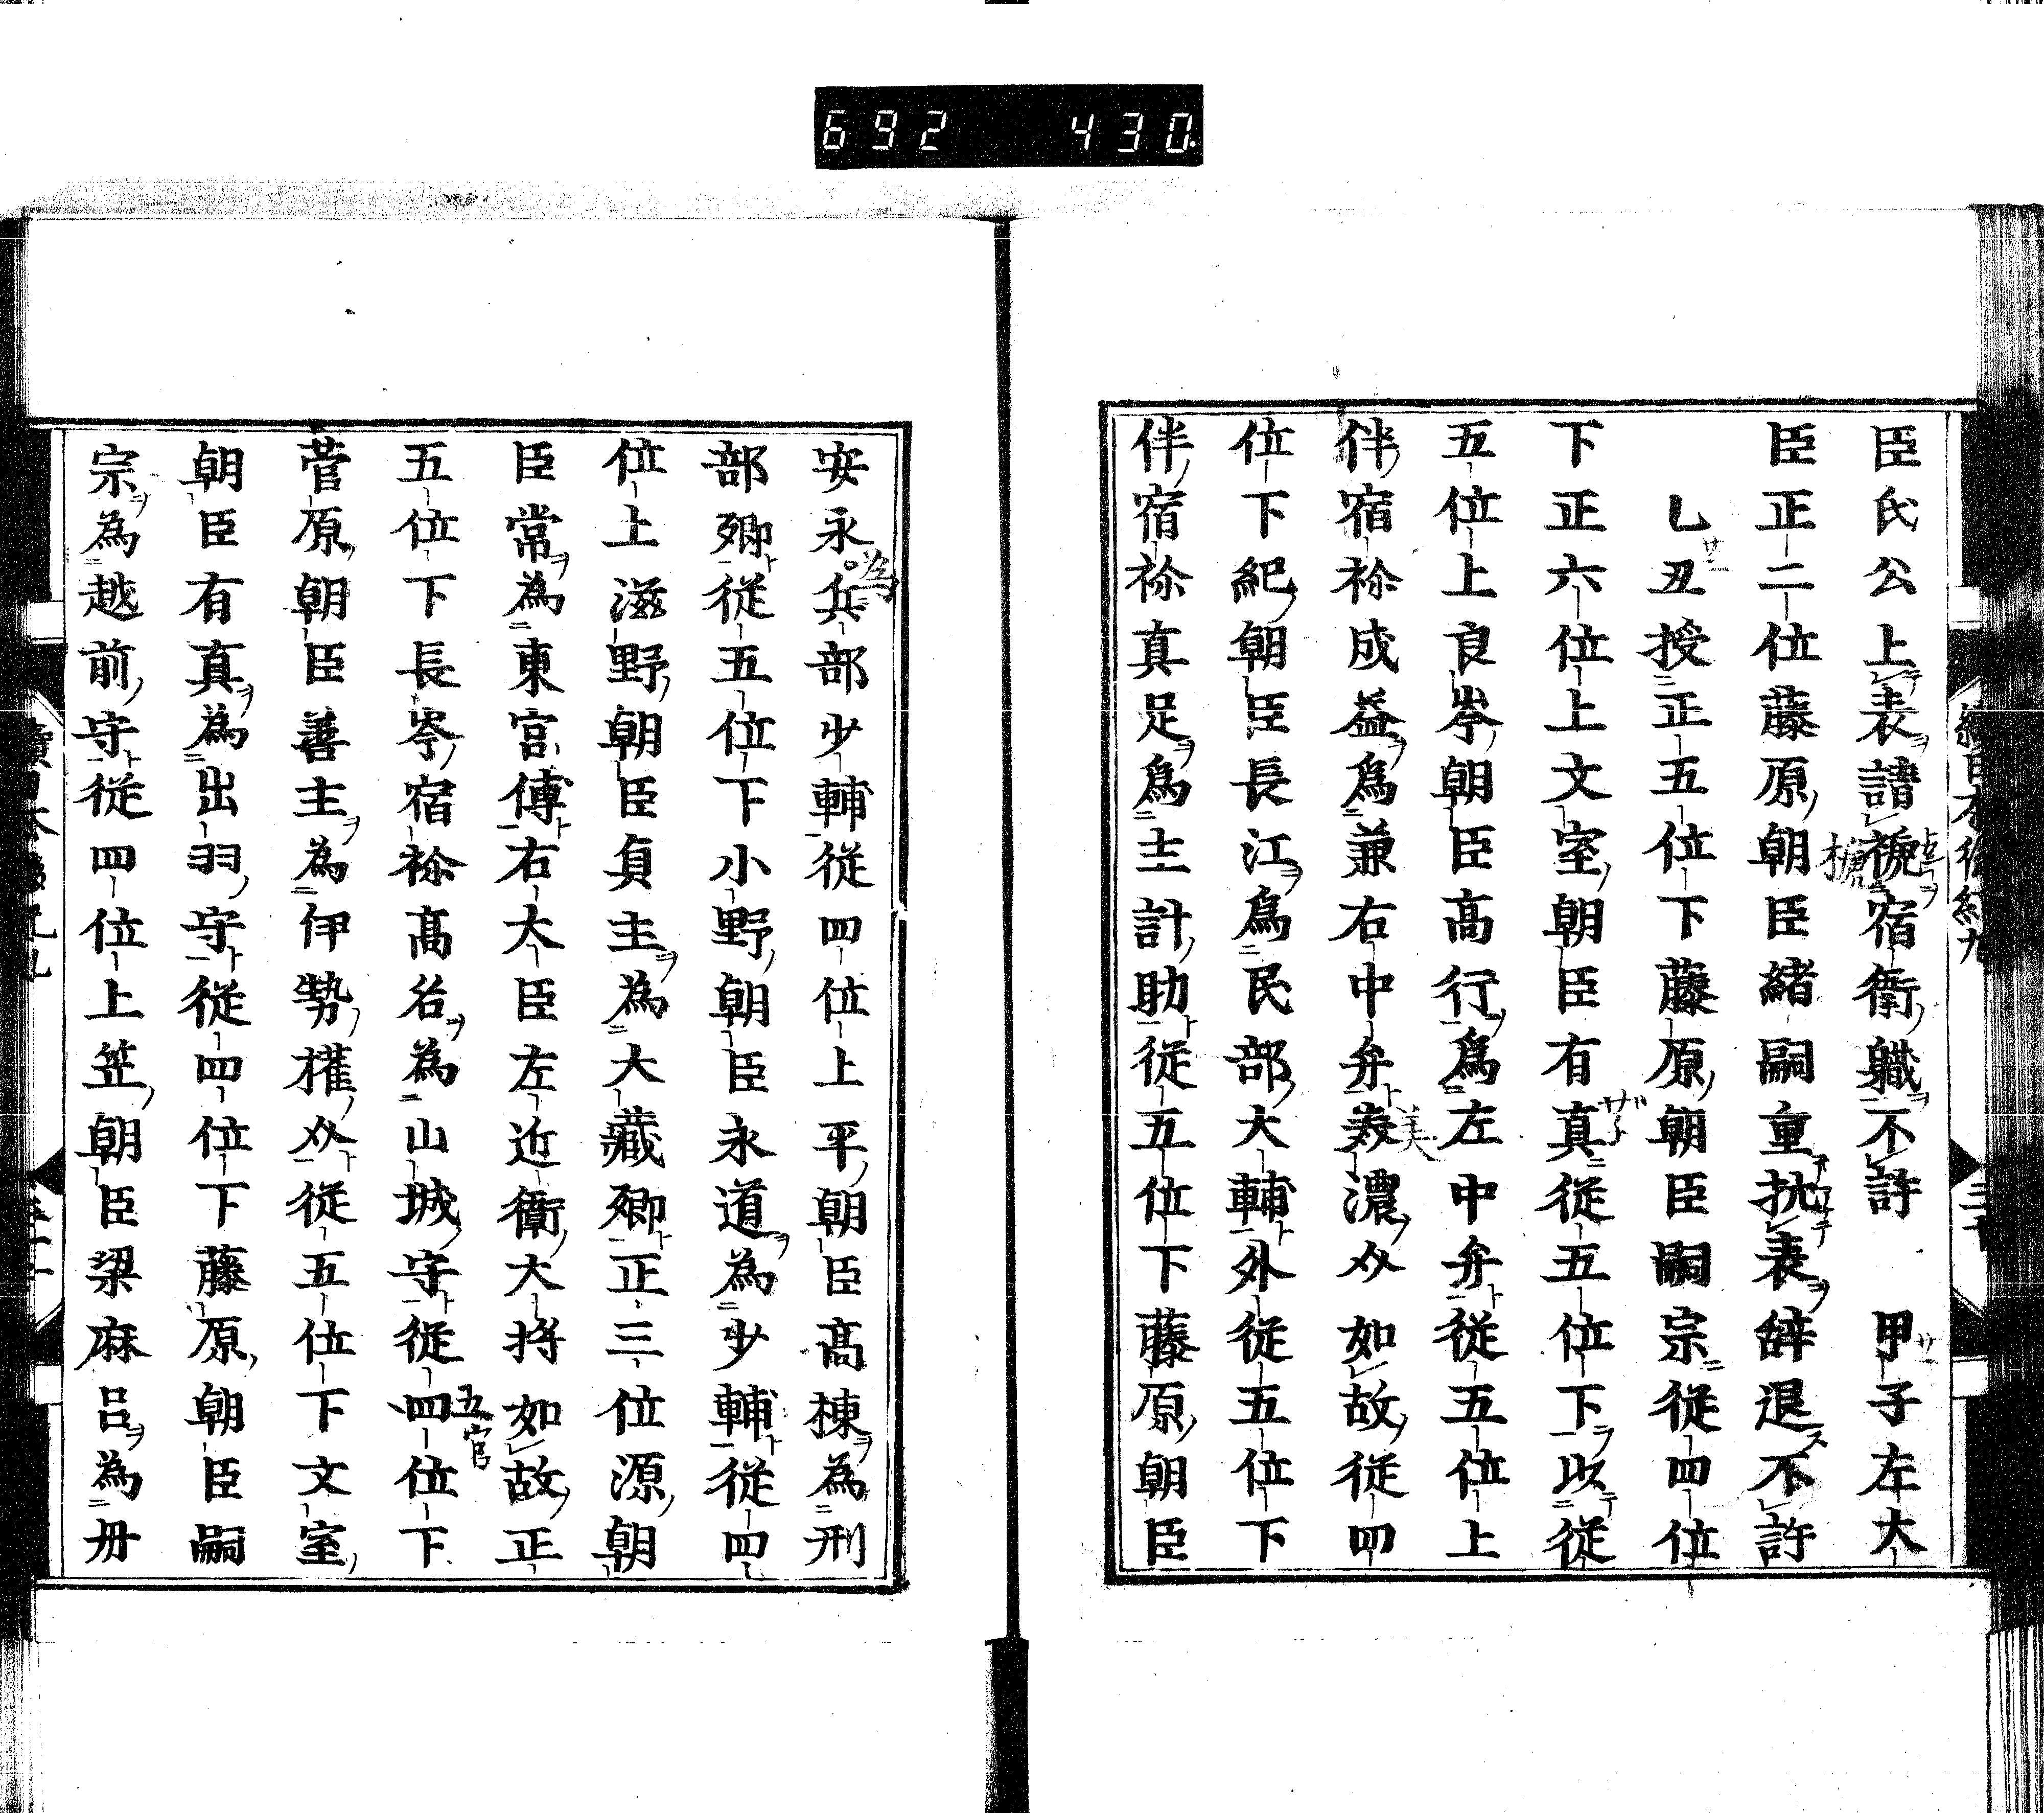 692 430
臣氏公上表請褫宿衛職不許 甲子左大
臣正二位藤原朝臣緒嗣重抗表辞退不許
乚丑授正五位下藤原朝臣嗣宗從四位
下正六位上文室朝臣有真從五位下以從
五位上良岑朝臣高行爲左中弁從五位上
伴宿祢成益爲兼右中弁美濃介如故從四
位下紀朝臣長江爲民部大輔外從五位下
伴宿祢真足爲主計助從五位下藤原朝臣
安永兵部少輔從四位上平朝臣高棟為刑
部卿從五位下小野朝臣永道為少輔從四
位上滋野朝臣貞主為大藏卿正三位源朝
臣常為東宮傅右大臣左近衛大将如故正
五位下長岑宿祢高名為山城守從四位下
菅原朝臣善主為伊勢權介從五位下文室
朝臣有真為出羽守從四位下藤原朝臣嗣
宗為越前守從四位上笠朝臣梁麻呂為丹